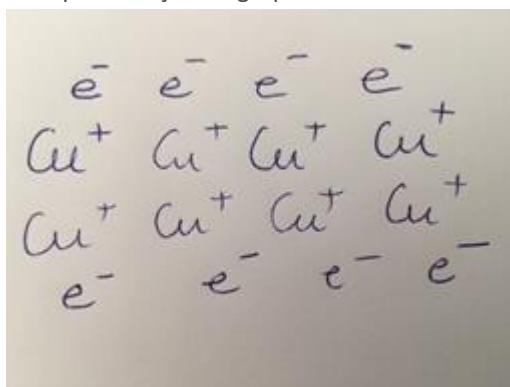 e⁻ e⁻ e⁻ e⁻
Cu⁺ Cu⁺ Cu⁺ Cu⁺
Cu⁺ Cu⁺ Cu⁺ Cu⁺
e⁻ e⁻ e⁻ e⁻